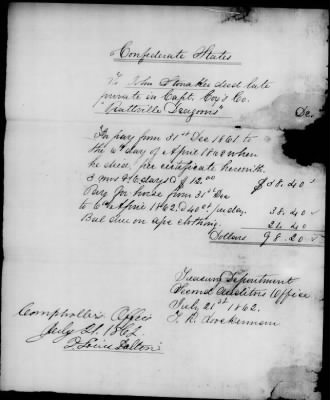 Confederate States
To John Stonaker decd late
private in Capt. Coy's Co.
"Prattville Dragoons" Dr.
For pay from 31st Dec 1861 to
the 6th day of April 1862 when
he died, per certificate herewith
3 mos & 6 days @ $12.00 $38.40
Pay for horse from 31st Dec
to 6th April 1862 @ 40c per day 38.40
Bal due on a/c clothing
Dollars 98.20
Treasury Department
Second Auditors Office
July 21st 1862.
Comptrollers Office
July 21. 1862